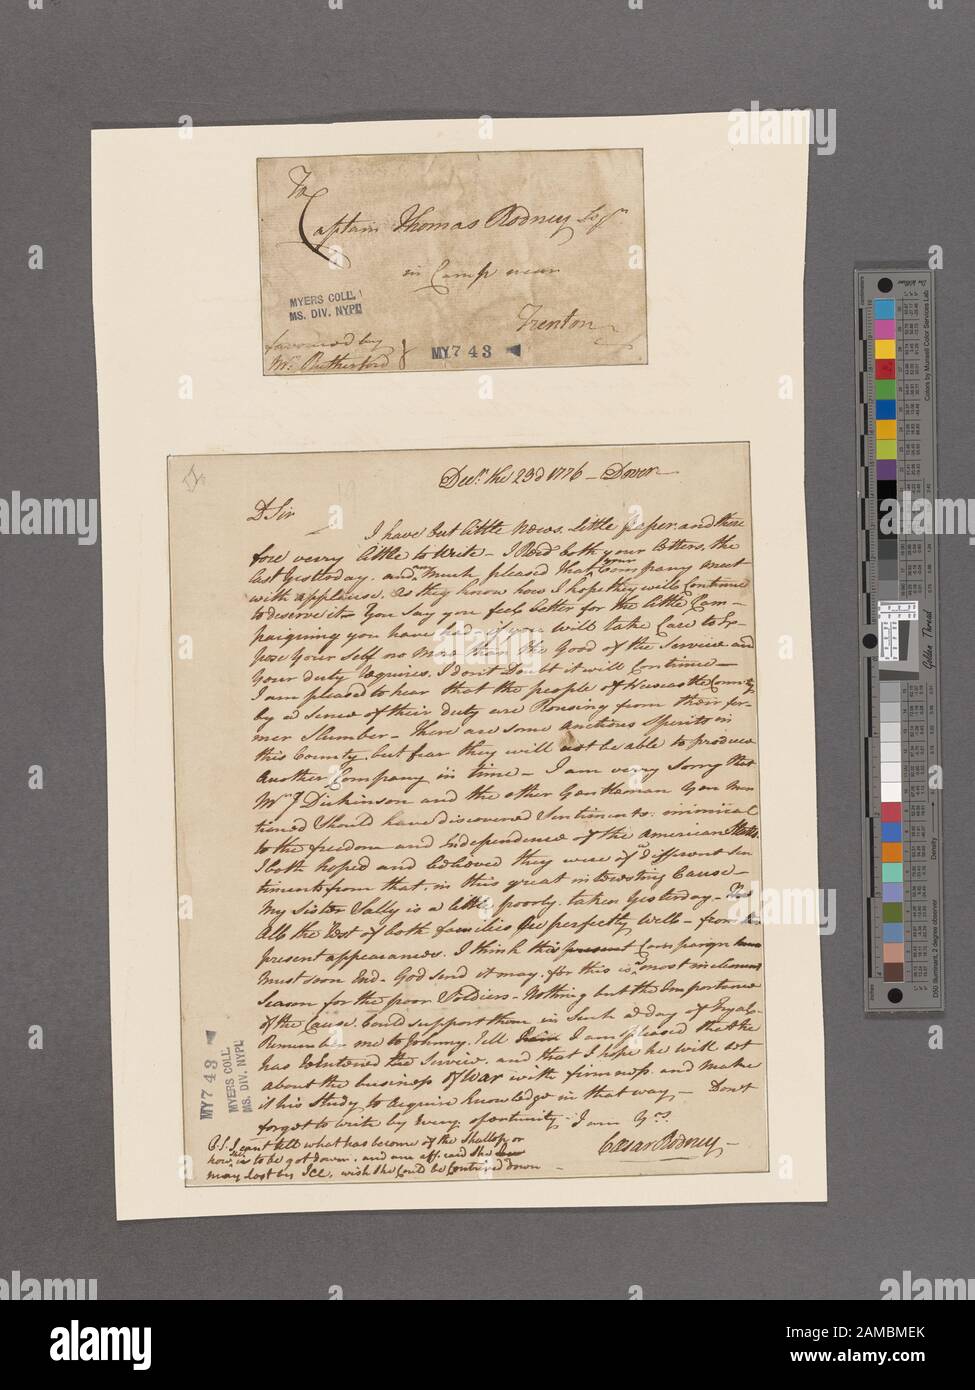 To
Captain Thomas Rodney Esqr.
in Camp near
Trenton
MYERS COLL.
MS. DIV. NYPL
favoured by
Mr. Rutherford
MY743
Decr. the 23d 1776 – Dover
Dr Sir
I have but little News, little paper and there
fore very little to write – I Recd. both your letters, the
last yesterday. and am much pleased that your Company meet
with applause. As they know how I hope they will Continue
to deserve it – You say you feel better for the little Cam–
paigning you have had, if you will take Care to Ex–
pose your self no more than the Good of the Service and
your duty requires, I don't doubt it will Continue –
I am pleased to hear that the people of Newcastle County
by a sense of their duty are Rousing from their for–
mer Slumber – There are some anctious spirits in
this County, but fear they will not be able to produce
another Company in time – I am very sorry that
Mr. J Dickinson and the other Gentleman you men
tioned should have discovered Sentiments inimical
to the freedom and Independence of the American States.
I both hoped and believed they were of different Sen
timents from that, in this great interesting Cause –
My Sister Sally is a little poorly, taken yesterday – The
All the Rest of both families are perfectly well – from the
present appearances, I think this present Campaign
must soon End – God send it may, for this is a most inclement
season for the poor Soldiers – Nothing but the Importance
of the Cause Could support them in such a day of Tryal –
Remember me to Johnny, Tell him I am pleased that he
has ReEntered the Service, and that I hope he will set
about the business of War with firmness and make
it his study to acquire knowledge in that way – Don't
forget to write by every oportunity – I am Yrs.
Caesar Rodney –
P.S. I cant tell what has become of the Shallop, or
how she is to be got down. and am affraid she
may lost by ICE, wish she Could be Contrived down –
MY743
MYERS COLL.
MS. DIV. NYPL
alamy
Image ID: 2ABMBEK
www.alamy.com